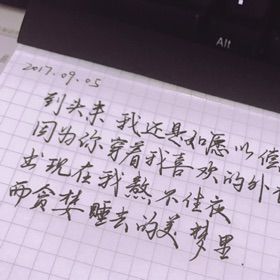 Alt
2017.09.05
到头来 我还是如愿以偿
因为你穿着我喜欢的外
出现在我熬不住夜
而贪婪睡去的美梦里.